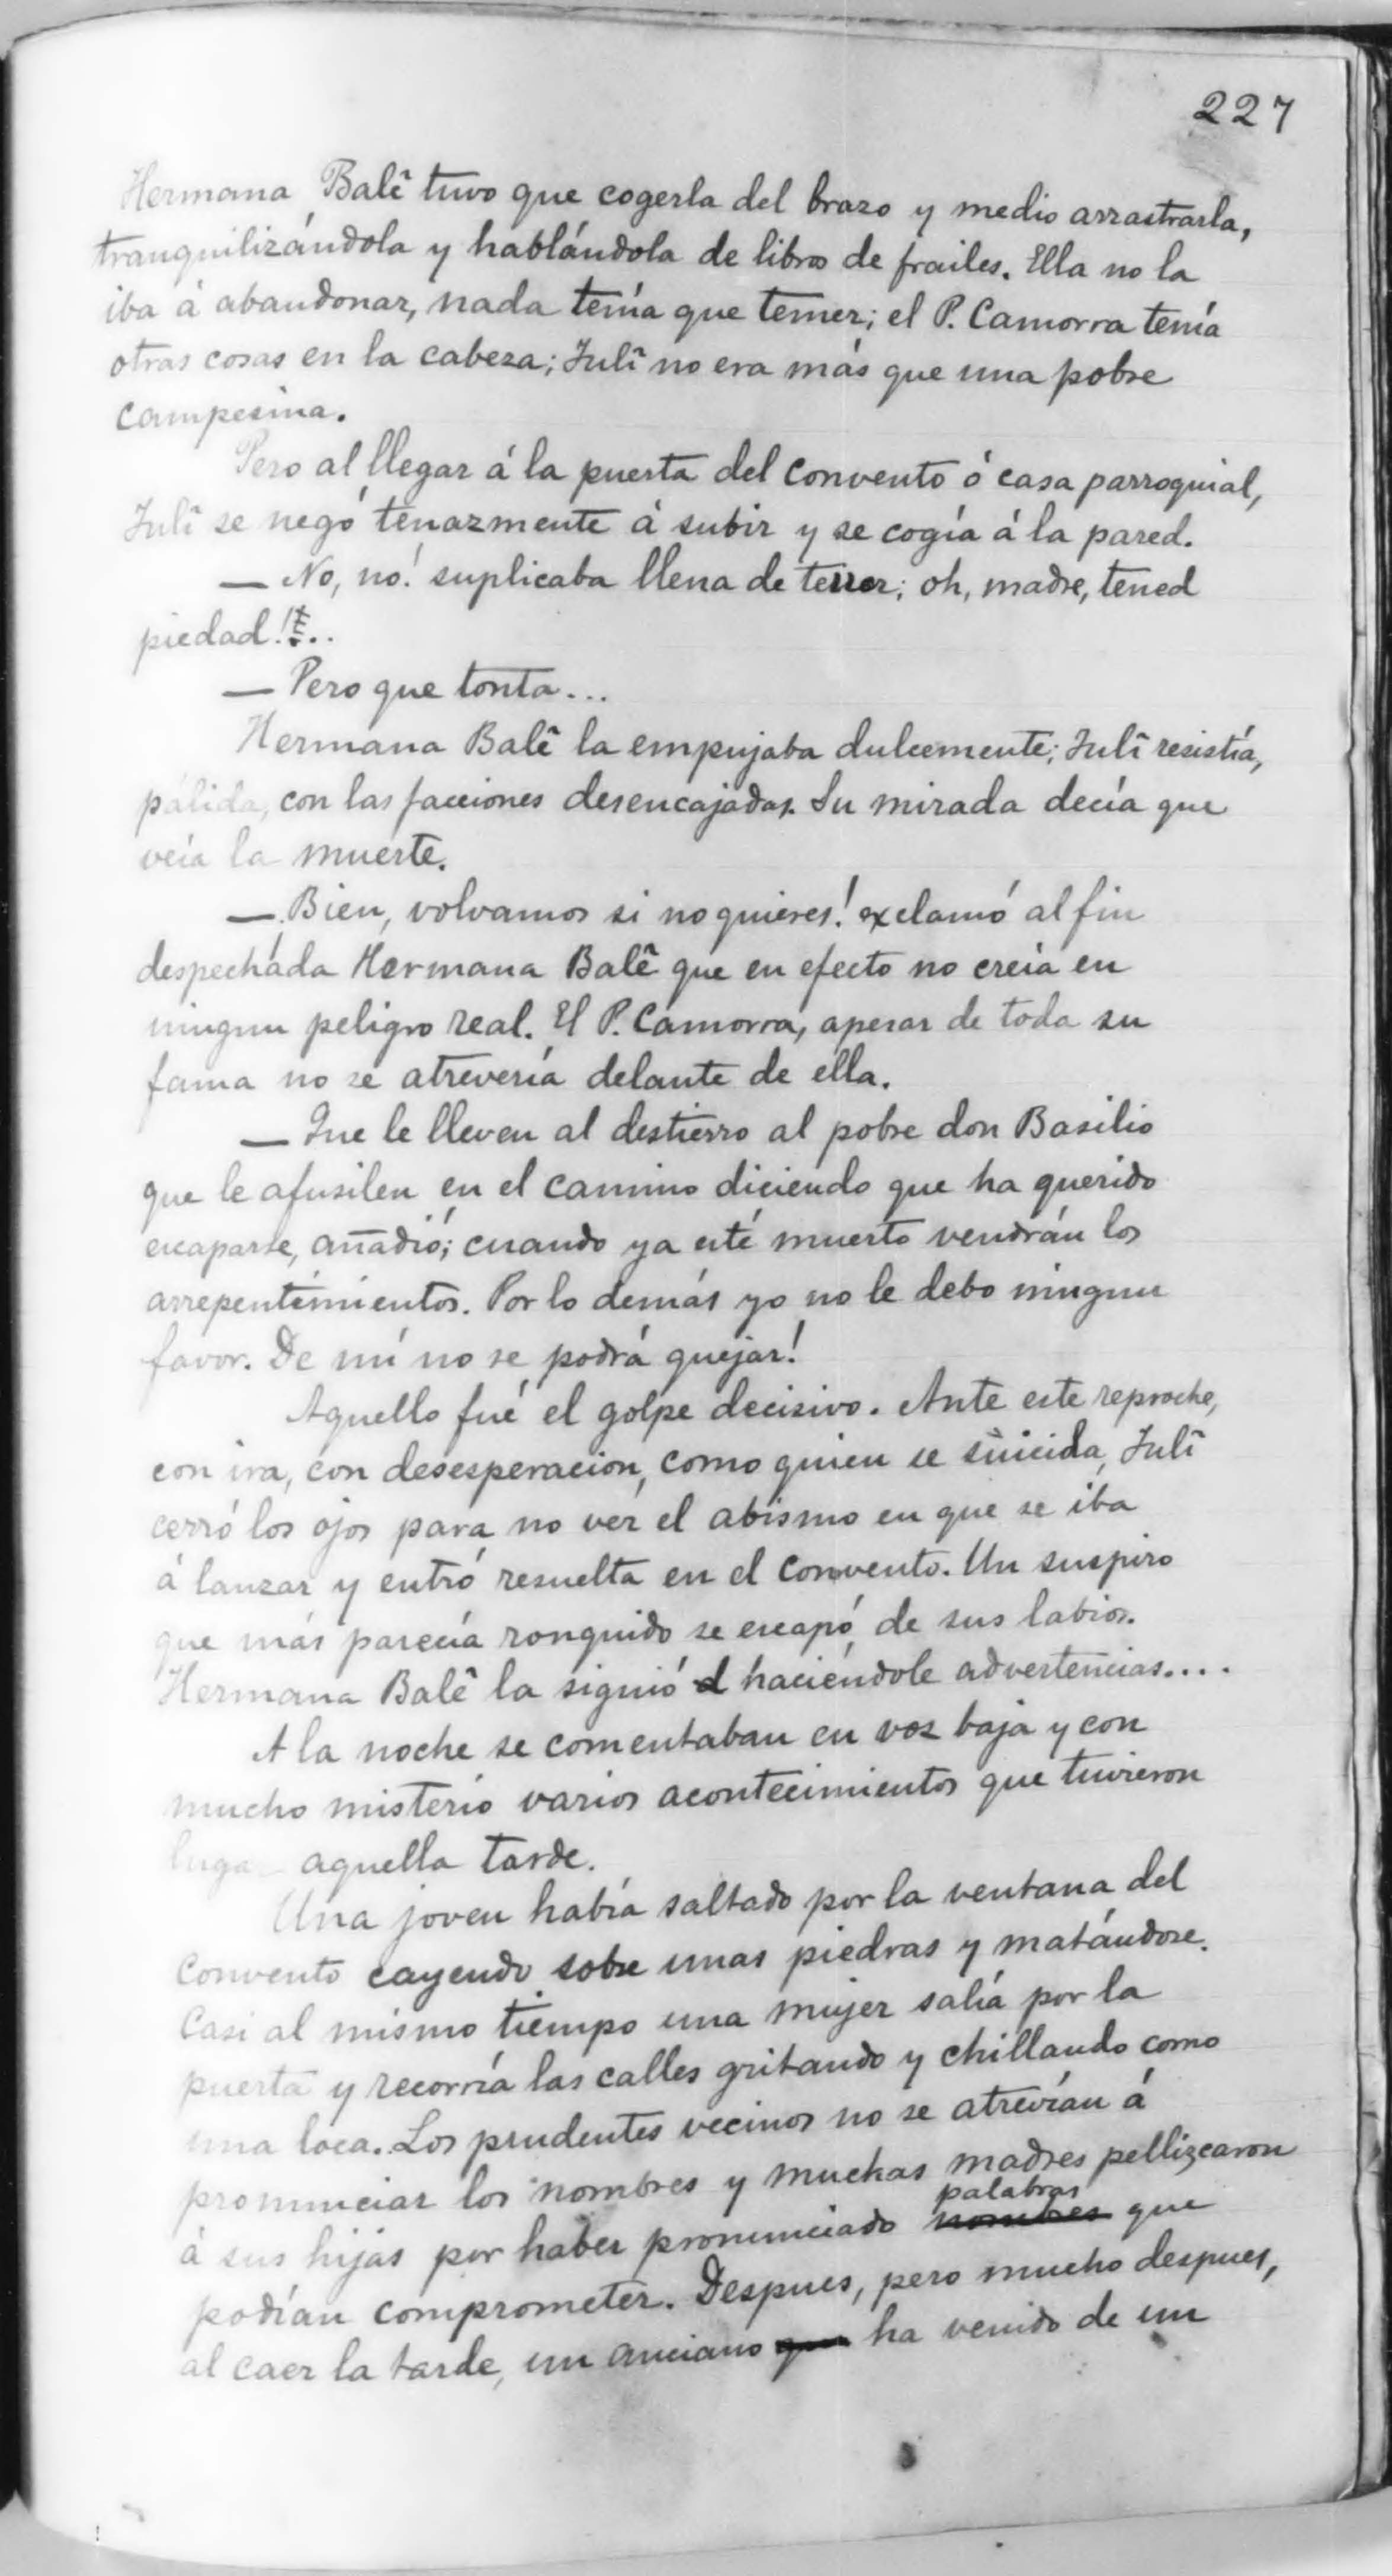 227
Hermana Balî tuvo que cogerla del brazo y medio arrastrarla,
tranquilizándola y hablándola de libros de frailes. Ella no la
iba á abandonar, nada tenía que temer; el P. Camorra tenía
otras cosas en la cabeza; Julî no era más que una pobre
campesina.
Pero al llegar á la puerta del convento ó casa parroquial,
Julî se negó tenazmente á subir y se cogía á la pared.
— No, no! suplicaba llena de terror; oh, madre, tened
piedad!...
— Pero que tonta...
Hermana Balê la empujaba dulcemente; Julî resistía,
pálida, con las facciones desencajadas. Su mirada decía que
veía la muerte.
— Bien, volvamos si no quieres! exclamó al fin
despechada Hermana Balê que en efecto no creía en
ningun peligro real. El P. Camorra, apesar de toda su
fama no se atrevería delante de ella.
— Que le lleven al destierro al pobre don Basilio
que le afusilen en el camino diciendo que ha querido
escaparse, añadió; cuando ya esté muerto vendrán los
arrepentimientos. Por lo demás yo no le debo ningun
favor. De mí no se podrá quejar!
Aquello fué el golpe decisivo. Ante este reproche,
con ira, con desesperacion, como quien se suicida, Julî
cerró los ojos para no ver el abismo en que se iba
á lanzar y entró resuelta en el convento. Un suspiro
que más parecía ronquido se escapó de sus labios.
Hermana Balê la siguió haciéndole advertencias....
A la noche se comentaban en voz baja y con
mucho misterio varios acontecimientos que tuvieron
lugar aquella tarde.
Una joven había saltado por la ventana del
convento cayendo sobre unas piedras y matándose.
Casi al mismo tiempo una mujer salía por la
puerta y recorría las calles gritando y chillando como
una loca. Los prudentes vecinos no se atrevían á
pronunciar los nombres y muchas madres pellizcaron
palabras
á sus hijas por haber pronunciado nombres que
podían comprometer. Despues, pero mucho despues,
al caer la tarde, un anciano que ha venido de un